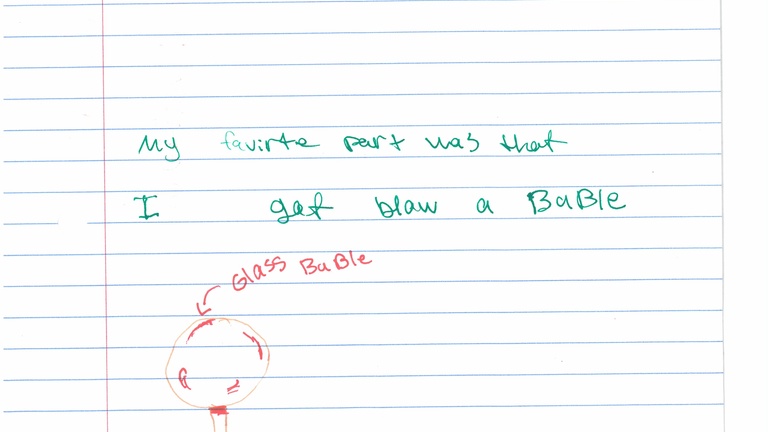 My favirte part was that
I get blaw a BaBle
Glass BaBle